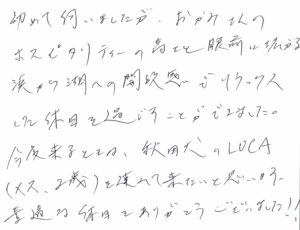 初めて伺いましたが、おかみさんの
ホスピタリティーの高さと眼前に拡がる
浜から湖への開放感でリラックス
した休日を過ごすことができました。
今度来るときは、秋田犬のLUCA
(メス、2歳)を連れて来たいと思います。
素適な休日をありがとうございました!!